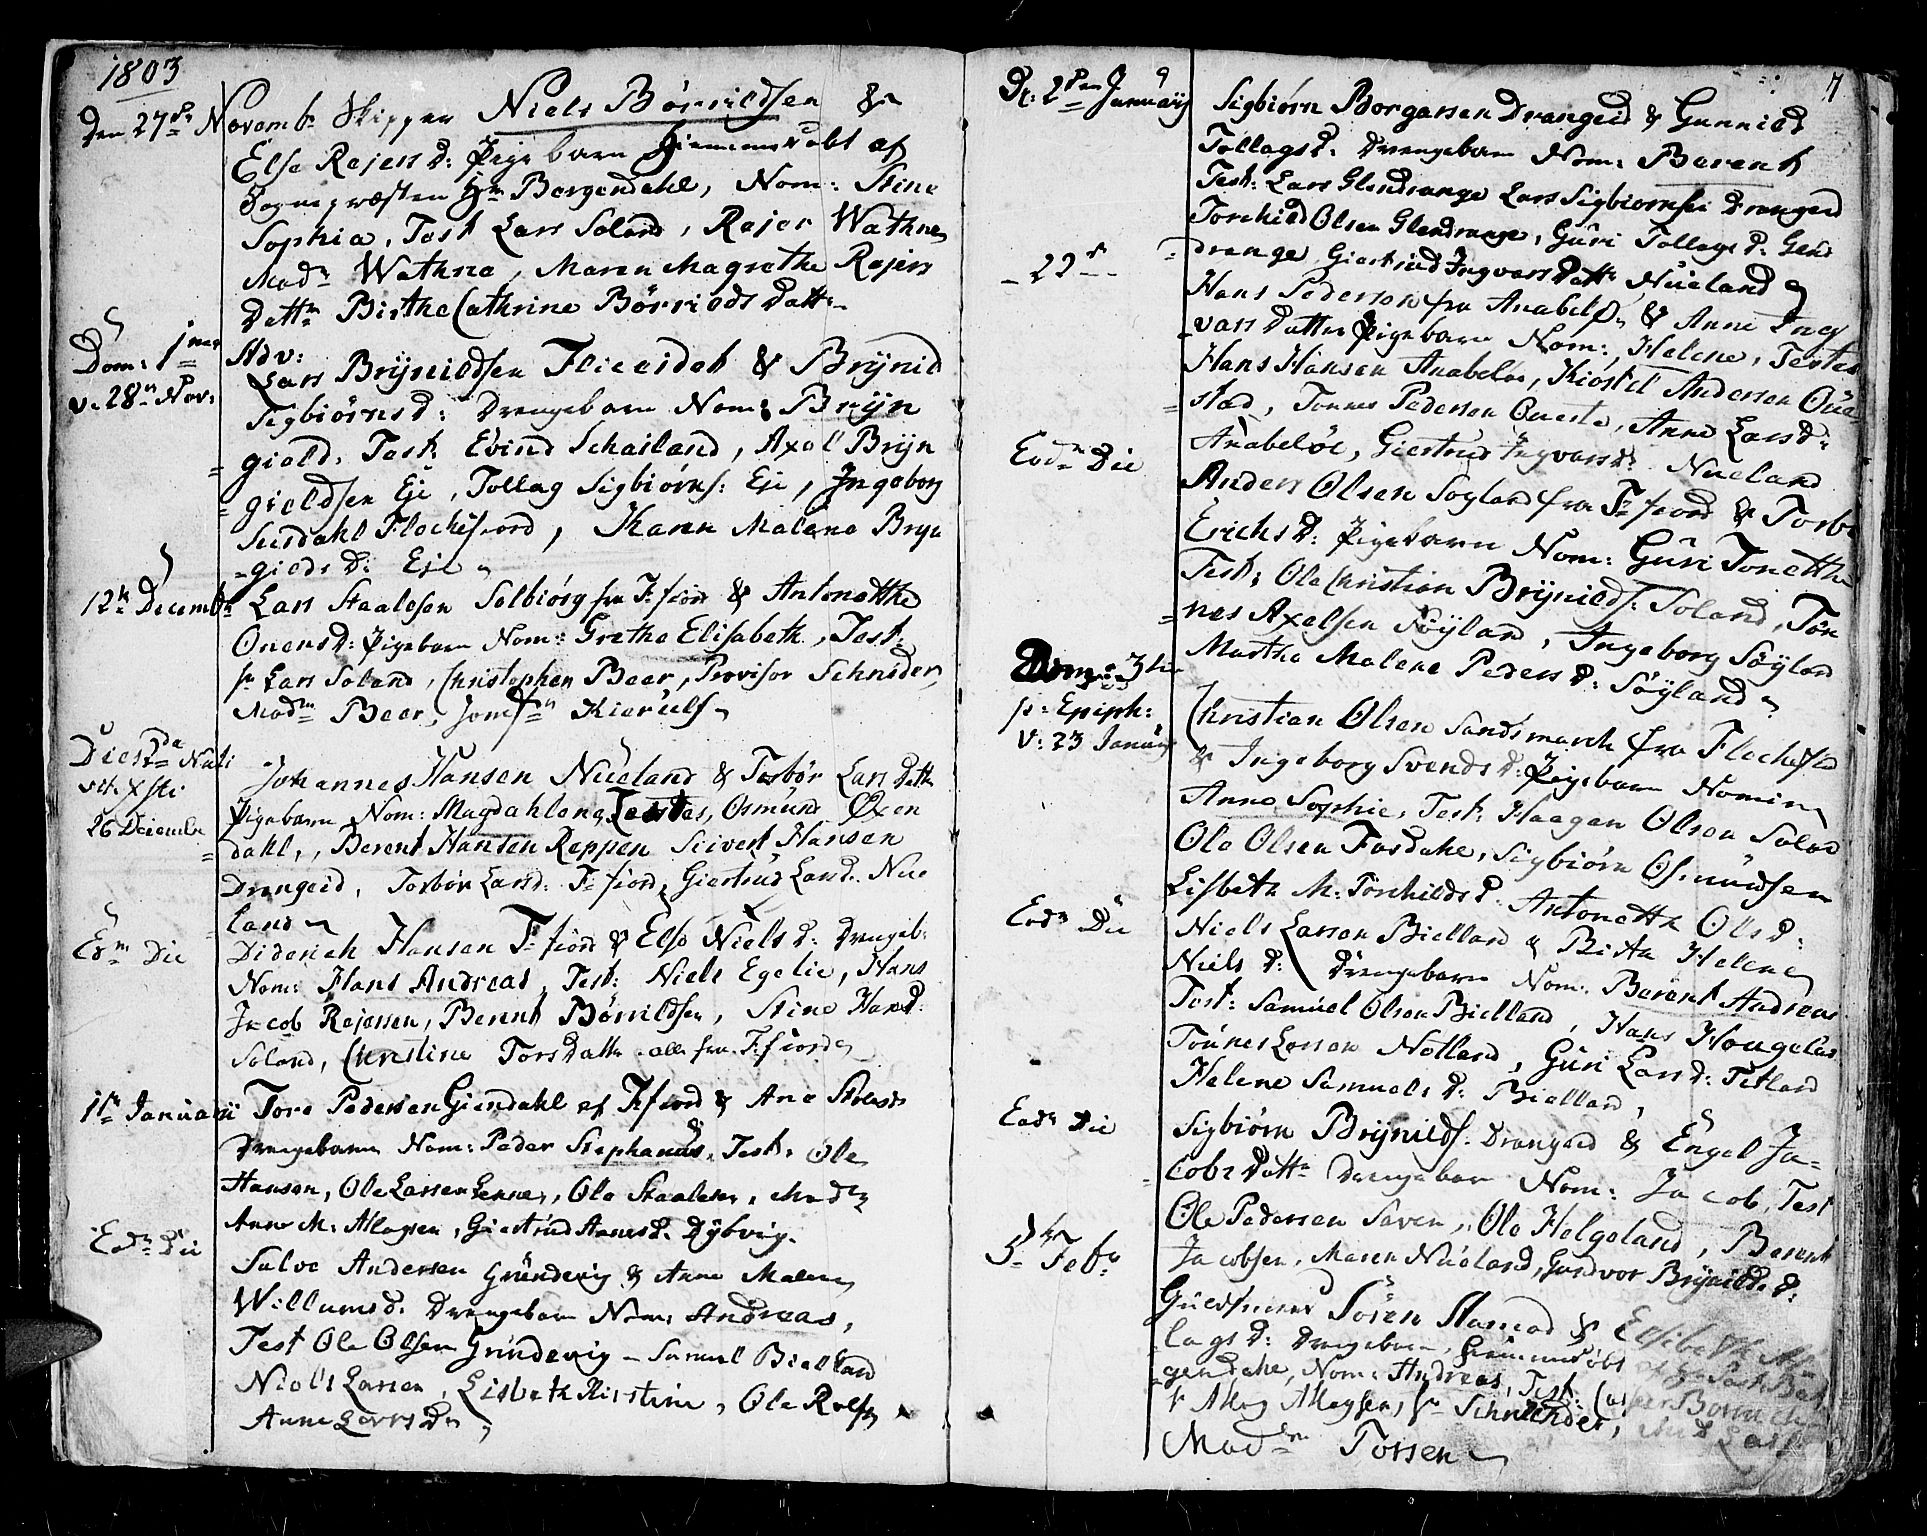 1803
Den 27de Novembr Skipper Niels Börrildsen &
Else Rejers D: Pigebarn hiemmedøbt af
Sognepræsten Hr Borgendahl, Nom: Stine
Sophia, Test Lars Soland, Rejer Wathne
Madm Wathne, Maren Magrethe Rejers
Dattr Birthe Cathrine Börrilds Dattr
Dom: 1ma Adv:
v. 28n Nov: Lars Brynildsen Fliceidet & Brynild
Sigbiörns D: Drengebarn Nom: Bryn
=gield, Test: Evind Schailand, Axel Bryn
=gieldsen Eje, Tollag Sigbiörns: Eje, Ingeborg
Surdahl Flechefiord, Karen Malene Bryn
=gields D: Eje
12te Decembr Lars Staalesen Solbiörg fra F:fiord & Antonette
Oners D: Pigebarn Nom: Grethe Elisabeth, Test:
Sr Lars Soland, Christopher Beer, Provisor Schnider,
Madm Beer, Jomfr Kierulf
Dies 2da Nati
vit. Xsti
26 Decembr Johannes Hansen Nueland & Torbör Lars Dattr
Pigebarn Nom: Magdahlena, Testes, Osmund Øxen
=dahl, Berent Hansen Reppen Sivert Hansen
Drangeid, Torbör Larsd: F:fiord, Giertrud Larsd: Nue
=land
Eodm Die Diderich Hansen F:fiord & Else Niels D: Drengeb:
Nom: Hans Andreas, Test: Niels Egelie, Hans
Jacob Rejersen, Berent Börrildsen, Stine Hansd:
Soland, Christine Tors Dattr alle fra F:fiord
1te Januarii Tore Pedersen Giendahl af F:fiord & Ane
Drengebarn Nom: Peder Stephanus, Test: Ole
Hansen, Ole Larsen, Ole Staalesen, Madm
Anne M: Allagsen, Giertrud D: Dybvig.
Eodm Die Salve Andersen Grundevig & Anne Malene
Willums D: Drengebarn Nom: Andreas,
Test Ole Olsen Grundevig – Samuel Bielland
Niels Larsen, Lisbeth Kirstine, Ole Rolfs
Anne Lars D:
7
D: 2den Januarij Sigbiörn Borgarsen Drangeid & Gunnild
Tollags D: Drengebarn Nom: Berent
Test: Lars Glendrange Lars Sigbiörnsen Drangeid
Torchild Olsen Glendrange, Guri Tollags D: Glend
=drange Giertrud Ingvars Dattr Nueland
– 22de – Hans Pedersen fra Anabelöe & Anne Ing
=vars Datter Pigebarn Nom: Helene, Testes
Hans Hansen Anabelöe, Kiöstel Andersen Que
=stad, Tönnes Pedersen Queste, Anne Lars D:
Anabelöe, Giertrud Ingvars D: Nueland
Eodm Die Anders Olsen Söyland fra F:fiord & Torbr
Erichs D: Pigebarn Nom: Guri Tonette
Test: Ole Christian Brynilds: Soland, Tön
=nes Axelsen Söyland, Ingeborg Söyland
Marthe Malene Peders D: Söyland
Dom: 3tia
p: Epiph:
v: 23 Januarij Christian Olsen Sandsmarch fra Flechefld
& Ingeborg Svends D: Pigebarn Nomin
Anne Sophie, Test: Haagen Olsen Soland
Ole Olsen Fosdahl, Sigbiörn Osmundsen
Lisbeth M: Torkilds D: Antonette Ols D:
Eodm Die Niels Larsen Bielland & Birthe Helene
Niels D: Drengebarn Nom: Berent Andreas
Test: Samuel Olsen Bielland, Hans Hougeland
Tönnes Larsen Netland, Guri Lars D: Tetland
Helene Samuels D: Bielland,
Eodm Die Sigbiörn Brynilds: Drangeid & Engel Ja=
=cobs Dattr Drengebarn Nom: Jacob, Test
Ole Pedersen Seven, Ole Helgeland, Berent
Jacobsen, Maren Nueland, Gundvor Brynilds D:
5te Febr Guldsmed Sören & Elsibeth
=lags D: Drengebarn, hiemmedøbt
Nom: Andreas, Test:
Sr Allag Allagsen, Sr Schneider,
Madm Torsen